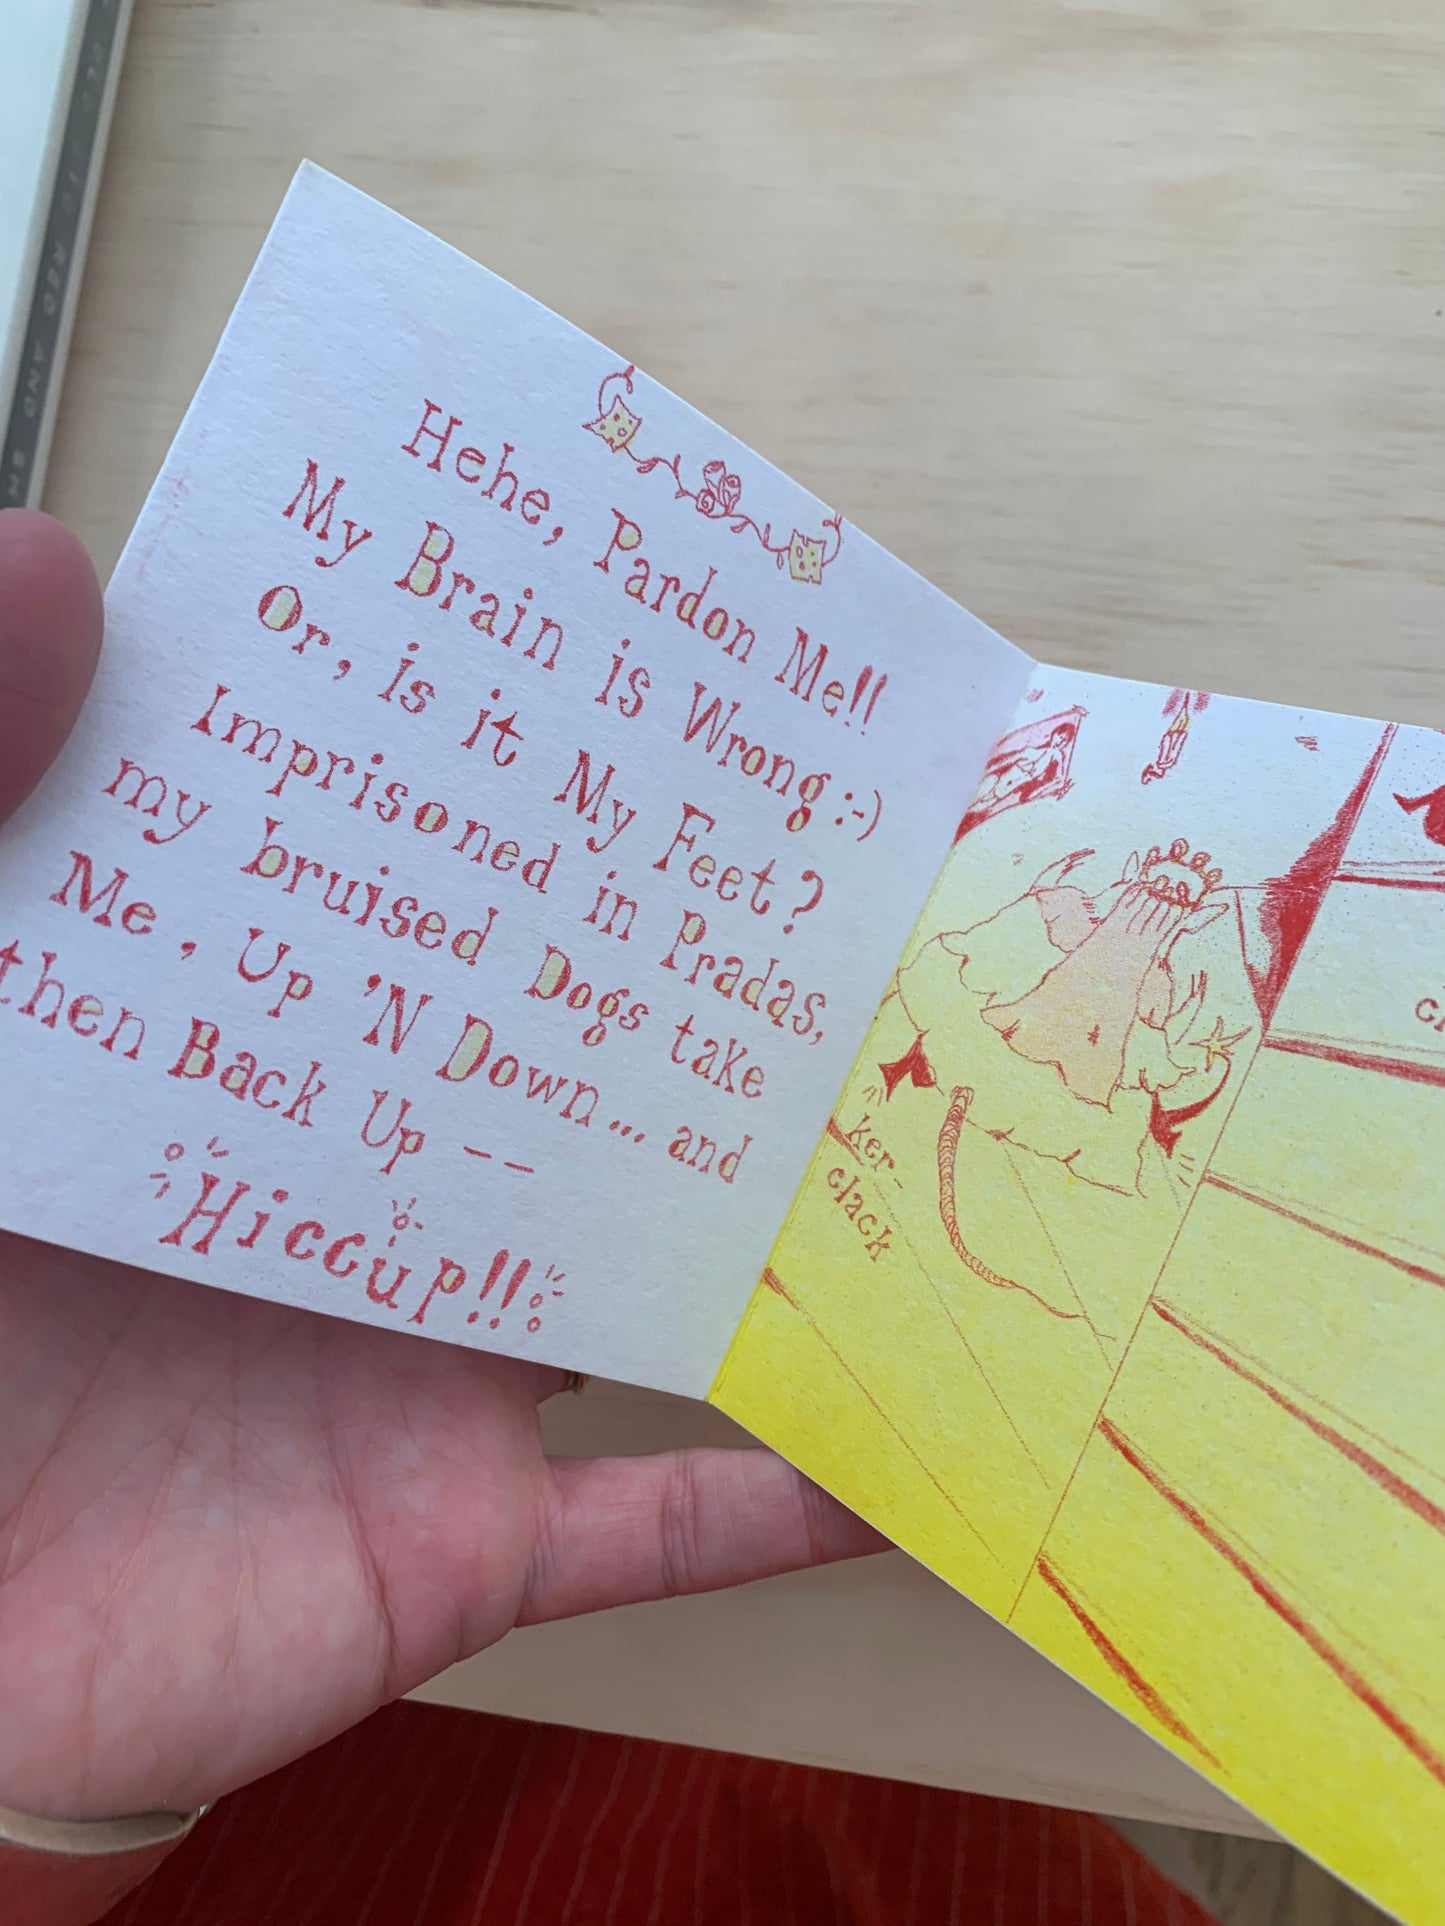 Hehe, Pardon Me!!
My Brain is Wrong :-)
Or, is it My Feet?
Imprisoned in Pradas,
my bruised Dogs take
Me, Up 'N Down... and
then Back Up --
Hiccup!!
ker-
clack
RED AND